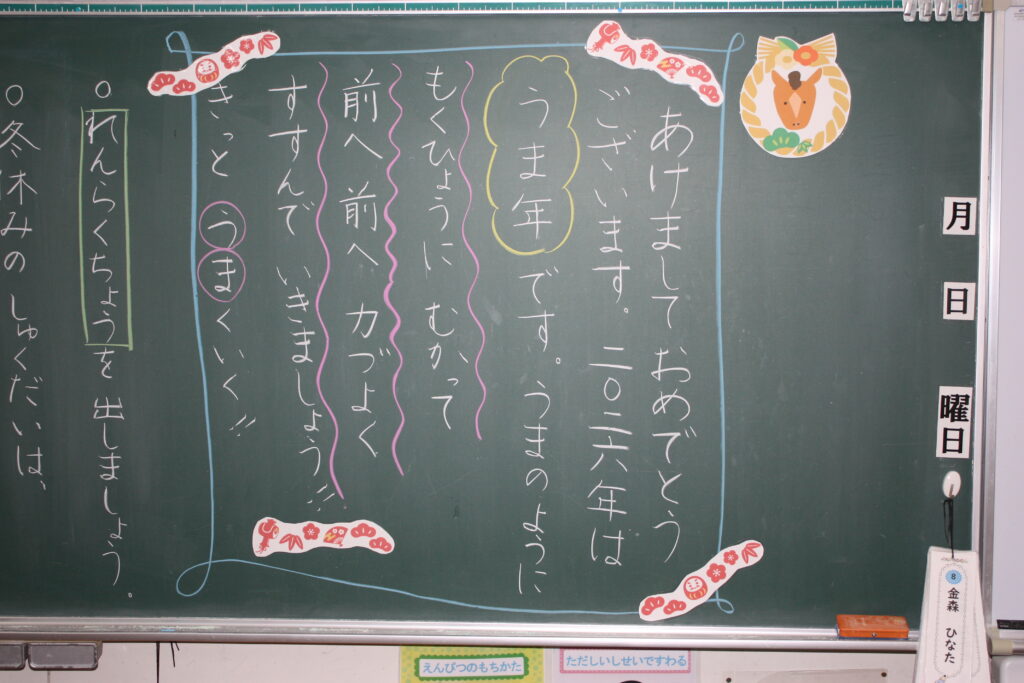 あけまして おめでとう
ございます。二〇二六年は
うま年です。うまのように
もくひょうに むかって
前へ 前へ 力づよく
すすんで いきましょう!!
きっと うまくいく!!
○れんらくちょうを 出しましょう。
○冬休みの しゅくだいは、
月
日
曜日
8
金森 ひなた
えんぴつのもちかた
ただしいしせいですわる